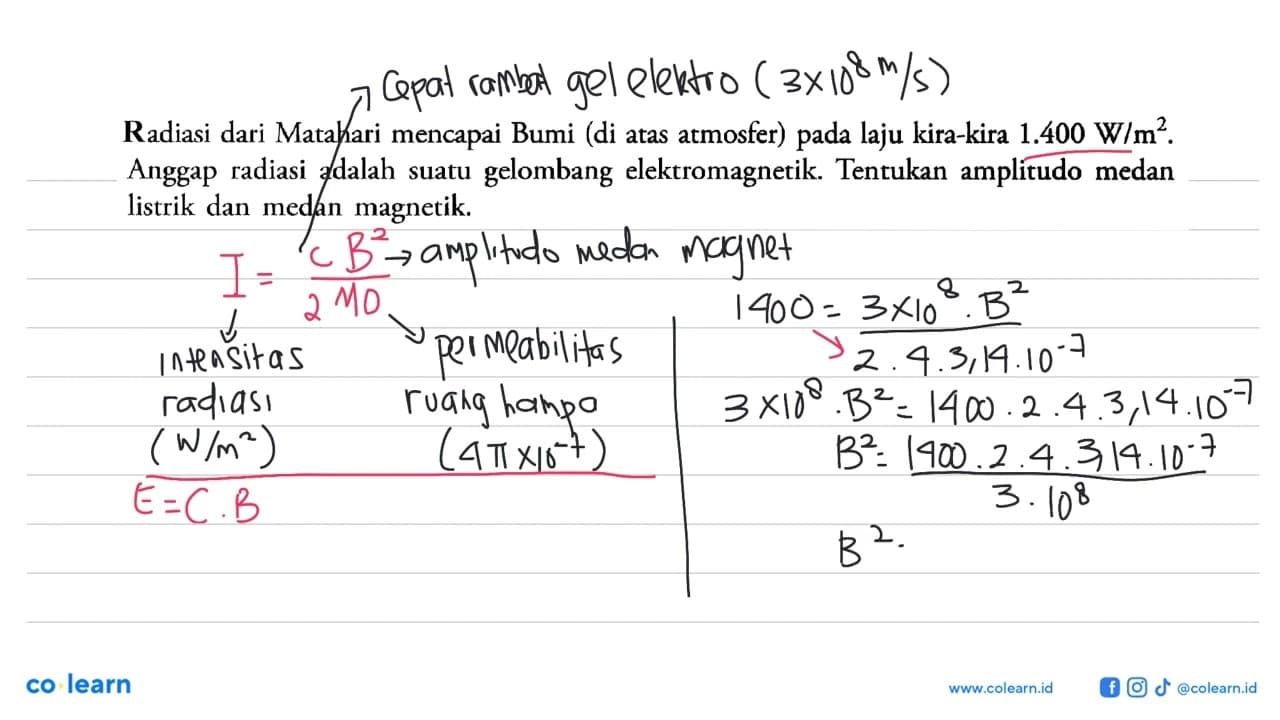 Cepat rambat gel elektro (3×10⁸ m/s)
Radiasi dari Matahari mencapai Bumi (di atas atmosfer) pada laju kira-kira 1.400 W/m².
Anggap radiasi adalah suatu gelombang elektromagnetik. Tentukan amplitudo medan
listrik dan medan magnetik.
I = cB² / 2μ0 → amplitudo medan magnet
intensitas
radiasi
(W/m²)
permeabilitas
ruang hampa
(4π×10⁻⁷)
E = C.B
1400 = 3×10⁸.B² / 2.4.3,14.10⁻⁷
3×10⁸.B² = 1400.2.4.3,14.10⁻⁷
B² = 1400.2.4.3,14.10⁻⁷ / 3.10⁸
B²
co learn
www.colearn.id
@colearn.id